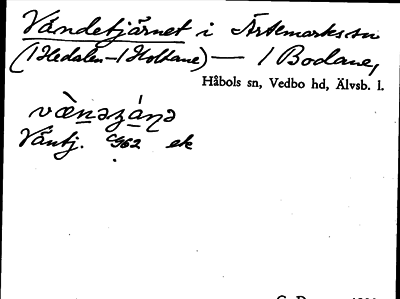 Våndetjärnet i Ärtemarks sn
(/Hedalen—/Holtane) — / Bodane,
Håbols sn, Vedbo hd, Älvsb. l.
vὰnəzánə
Våntj. C962 ek